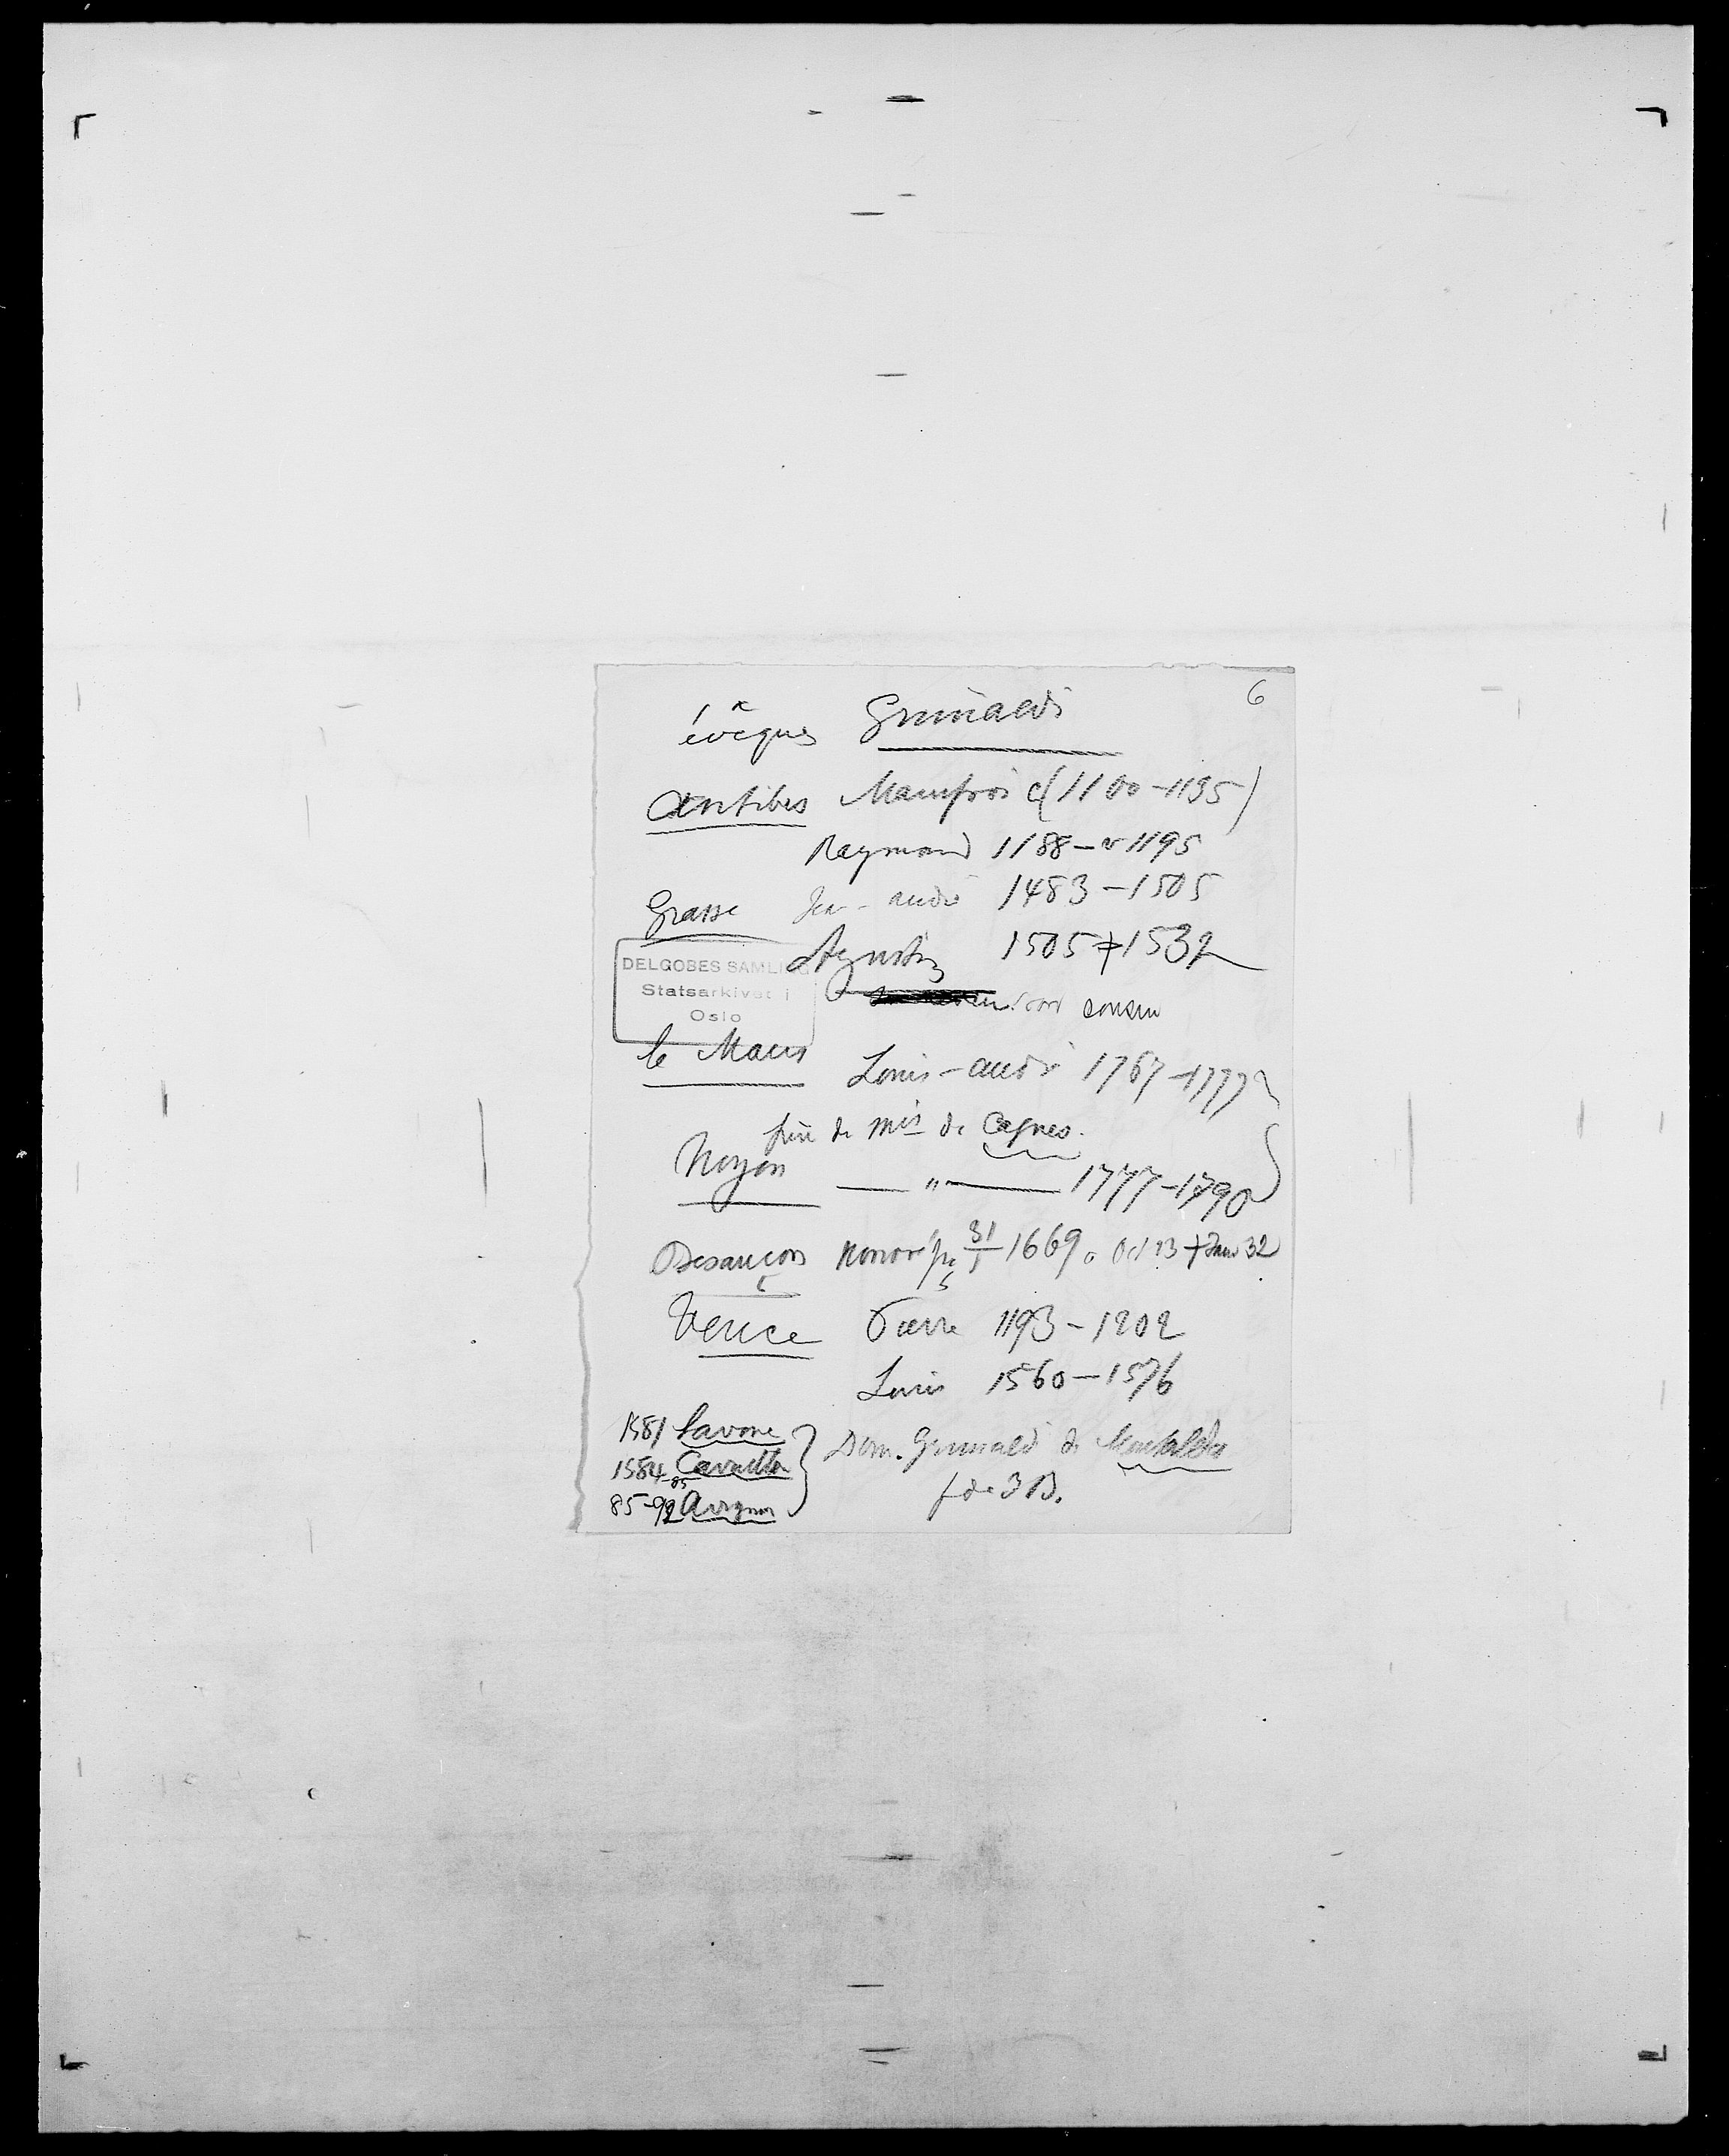 6
évêques Grimaldi
Antibes Mainfroi (1100-1135)
Raymond 1188-v1195
Grasse Jean-André 1483-1505
Agustin 1505 + 1532
DELGOBES SAMLING
Statsarkivet i
Oslo
son cousin
le Mans Louis-André 1767-1777
frère du Mis de Cagnes.
Noyon — " — 1777-1790
Besançon Honoré 31 1669 Oct 23 + Janv 32
Vence Pierre 1193-1202
Louis 1560-1576
1581 Savone
1584-85 Cavaillon Dom. Grimaldi de Montaldo
85-92 Avignon f de JB.